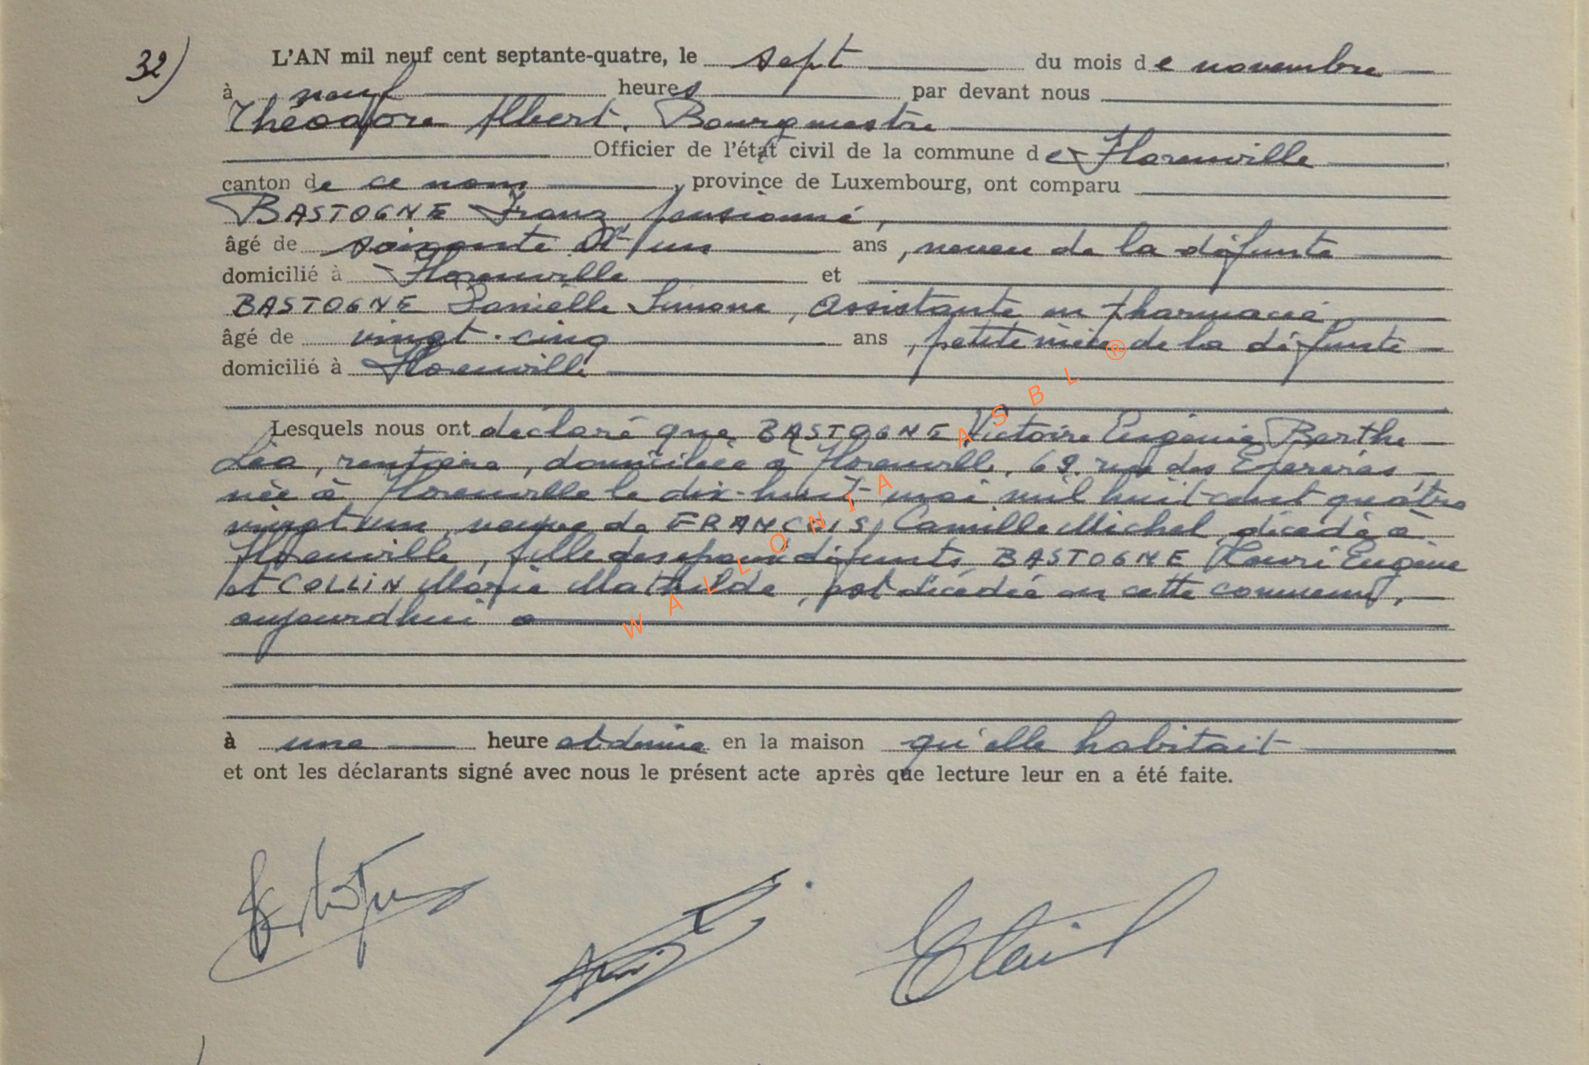 32)
L'AN mil neuf cent septante-quatre, le sept du mois de novembre
à neuf heures par devant nous
Théodore Albert, Bourgmestre
Officier de l'état civil de la commune de Florenville
canton de ce nom, province de Luxembourg, ont comparu
BASTOGNE Franz pensionné,
âgé de soixante et un ans, neveu de la défunte
domicilié à Florenville et
BASTOGNE Danielle Simone, Assistante en pharmacie,
âgé de vingt-cinq ans, petite nièce de la défunte
domicilié à Florenville
Lesquels nous ont déclaré que BASTOGNE Victoire Eugénie Berthe
Léa, rentière, domiciliée à Florenville, 69, rue des Eperires
née à Florenville le dix-huit mai mil huit cent quatre
vingt un veuve de FRANCOIS, Camille Michel, décédé à
Florenville, fille des époux défunts BASTOGNE Henri Eugène
et COLLIN Marie Mathilde, est décédée en cette commune,
aujourd'hui
à une heure et demie en la maison qu'elle habitait
et ont les déclarants signé avec nous le présent acte après que lecture leur en a été faite.
WALLONIA ASBL ®